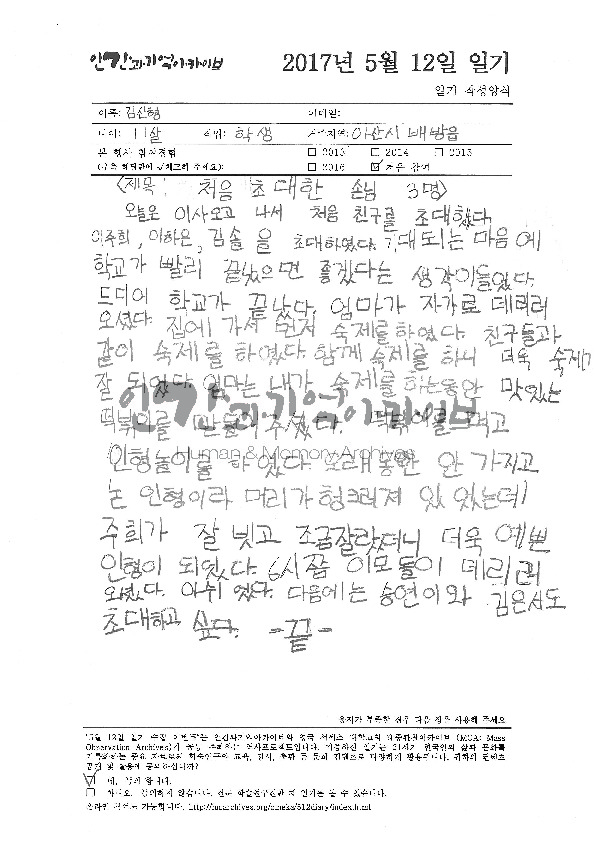 인간과기억아카이브
2017년 5월 12일 일기
일기 작성양식
이름: 김신형
이메일:
나이: 11살 직업: 학생 거주지역: 아산시 배방읍
본 행사 참여경험
□ 2013 □ 2014 □ 2015
□ 2016 ☑ 처음 참여
<제목: 처음 초대한 손님 3명>
오늘은 이사오고 나서 처음 친구를 초대했다
이주희, 이하은, 김솔 을 초대하였다. 기대되는 마음에
학교가 빨리 끝났으면 좋겠다는 생각이들었다.
드디어 학교가 끝났다. 엄마가 자가로 데리러
오셨다. 집에 가서 먼저 숙제를하였다. 친구들과
같이 숙제를 하였다. 함께 숙제를 하니 더욱 숙제가
잘 되었다. 엄마는 내가 숙제를 하는동안 맛있는
떡볶이를 만들어주셨다. 떡볶이를 먹고
인형놀이를 하였다. 오래동안 안 가지고
논 인형이라 머리가 헝크러져 있 었는데
주희가 잘 빗고 조금잘랐더니 더욱 예쁜
인형이 되었다. 6시쯤 이모들이 데리러
오셨다. 아쉬 웠다. 다음에는 승연이와 김은서도
초대하고 싶다. -끝-
인간과기억아카이브
Human & Memory Archives
용지가 부족할 경우 다음 장을 사용해 주세요
Observation Archives)가
☑ 네, 동의 합니다.
□ 아니오,
온라인 접속도 가능합니다.